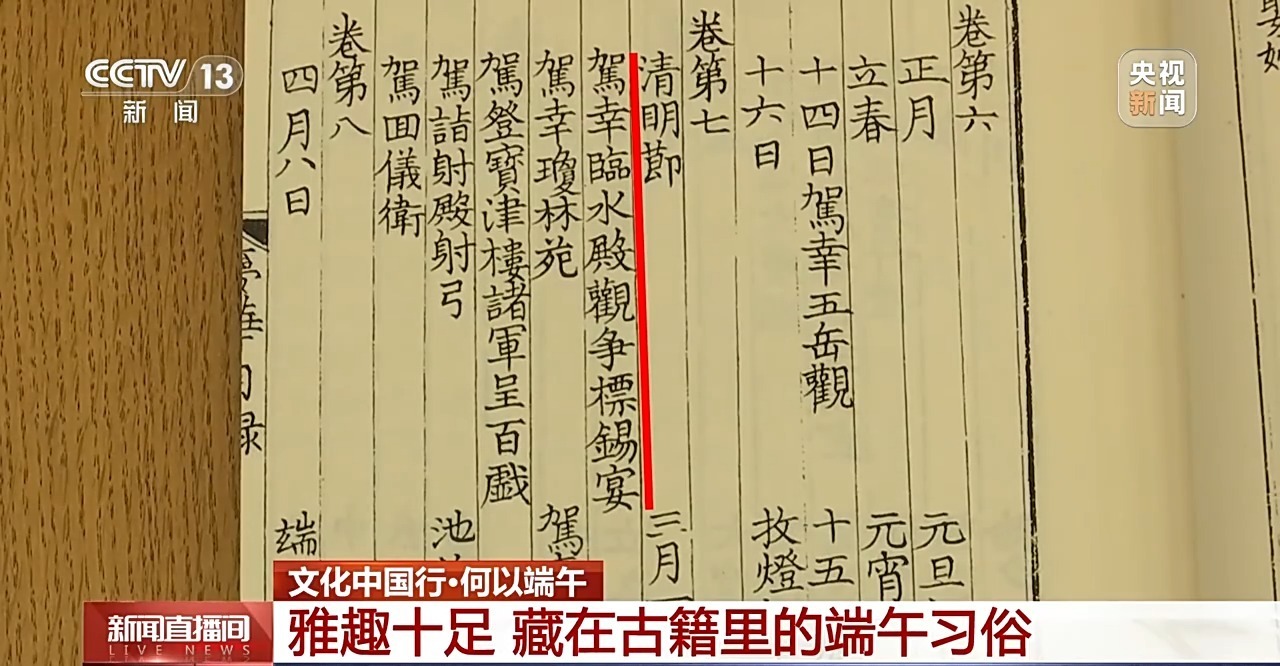 CCTV 13
新闻
央视
新闻
卷第六
正月 元旦
立春 元宵
十四日駕幸五岳觀 十五
十六日
卷第七
清明節 三月
駕幸臨水殿觀争標錫宴
駕幸瓊林苑 駕
駕登寶津樓諸軍呈百戯
駕詣射殿射弓 池
駕回儀衛
卷第八
四月八日 端
文化中国行·何以端午
新闻直播间
LIVE NEWS
雅趣十足 藏在古籍里的端午习俗